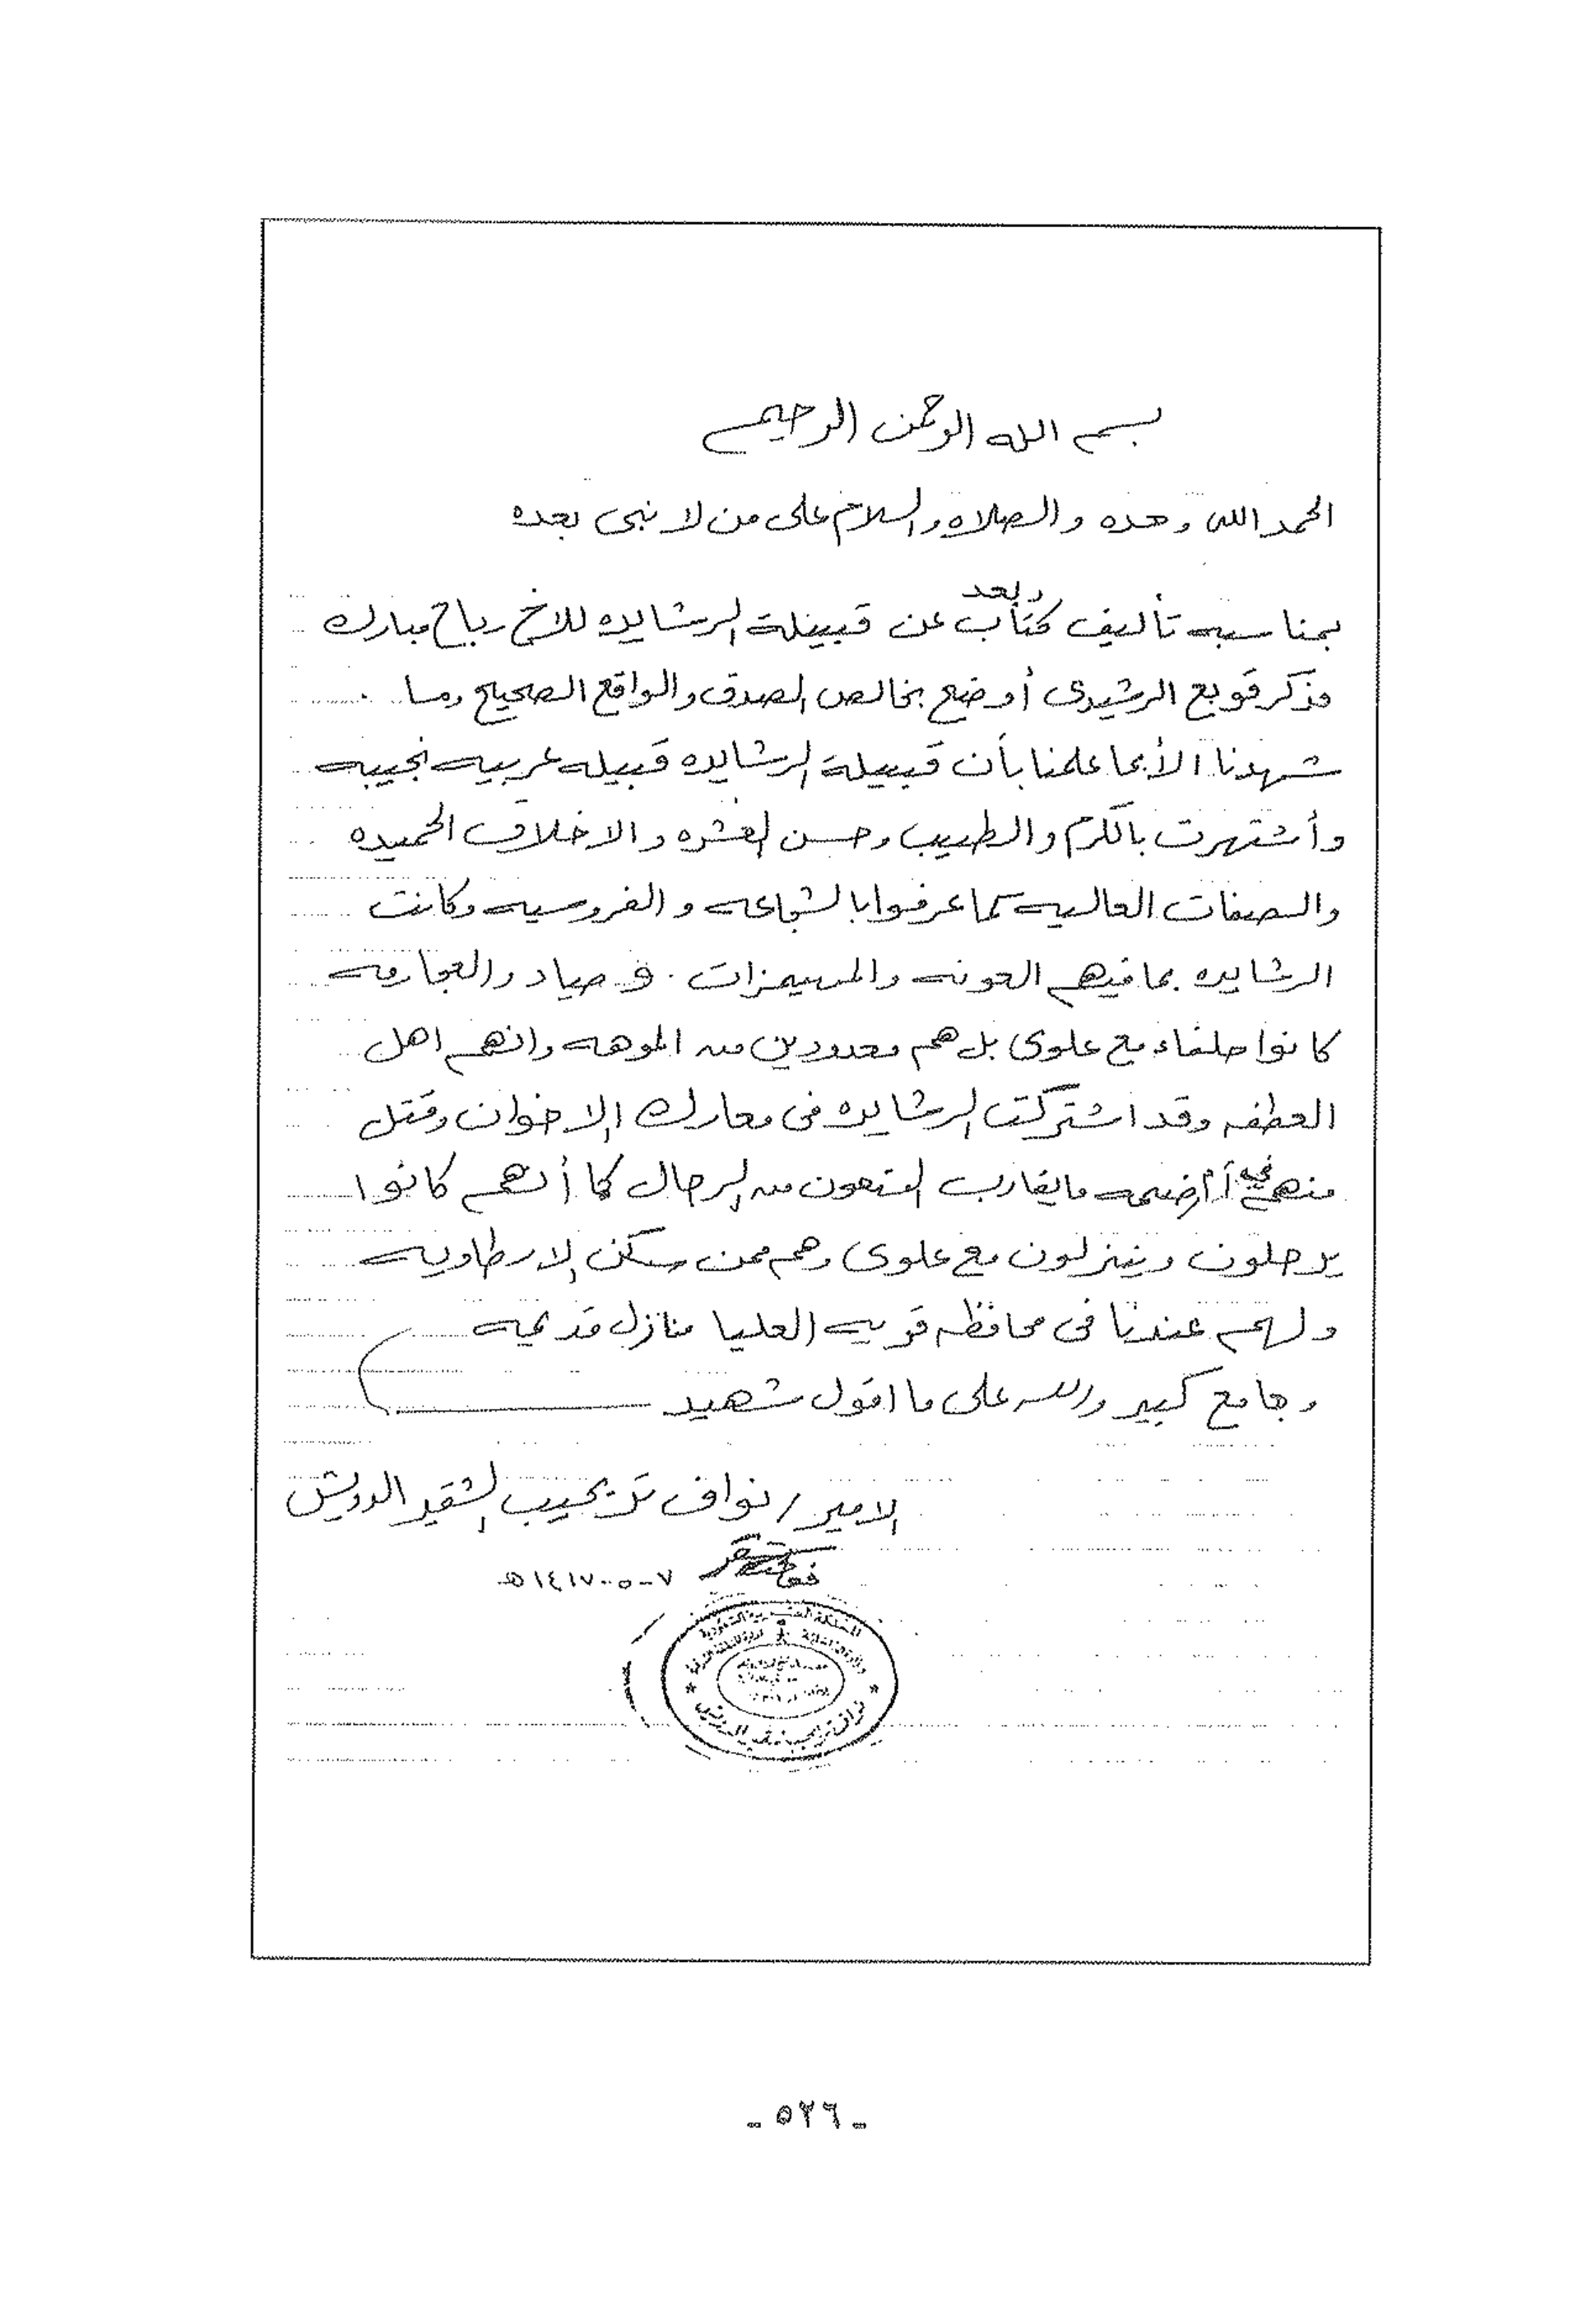 بسم الله الرحمن الرحيم
الحمد الله وحده والصلاه والسلام على من لا نبى بعده
وبعد
بمناسبه تأليف كتاب عن قبيلة الرشايده للاخ رباح مبارك
مذكر قويع الرشيدى أوضح بخالص الصدق والواقع الصحيح وما
شهدنا الا بما علمنا بأن قبيلة الرشايده قبيله عربيه نجيبه
وأشتهرت بالكرم والطيب وحسن العشره والاخلاق الحميده
والصفات العاليه كما عرفوا بالشجاعه والفروسيه وكانت
الرشايده بما فيهم العونه والمهيمزات و صياد والعجارمه
كانوا حلفاء مع علوى بل هم معدودين من الموهه وانهم اهل
العطفه وقد اشتركت الرشايده فى معارك الاخوان وقتل
منهم في أم رضمه مايقارب التسعون من الرجال كما أنهم كانوا
يرحلون وينزلون مع علوى وهم ممن سكن الارطاويه
ولهم عندنا فى محافظه قريه العليا منازل قديمه
وجامع كبير والله على ما اقول شهيد
الامير / نواف تريحيب الشقير الدويش
٧-٥-١٤١٧ هـ
المملكة العربية السعودية
نواف تريحيب شقير الدويش
- ٥٢٦ -